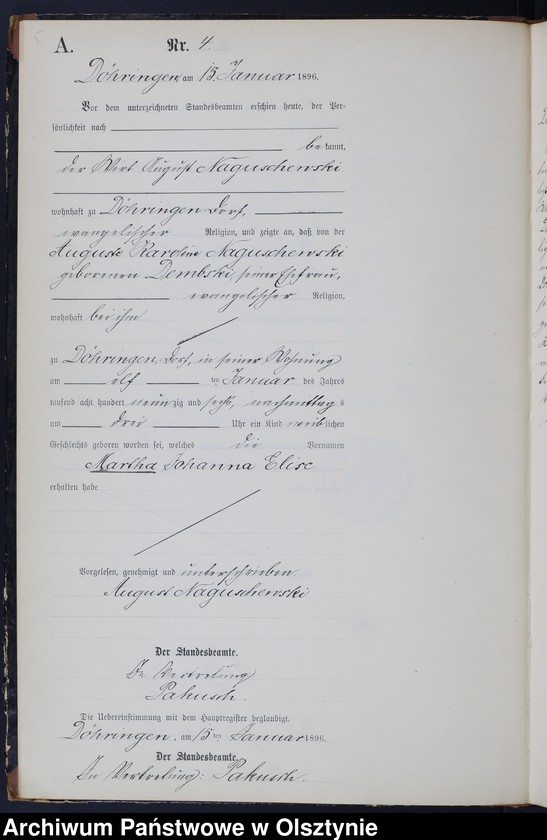 A. Nr. 4.
Döhringen am 15. Januar 1896.
Vor dem unterzeichneten Standesbeamten erschien heute, der Per-
sönlichkeit nach
be kannt,
der Wirt August Naguschewski
wohnhaft zu Döhringen Dorf,
evangelischer Religion, und zeigte an, daß von der
Auguste Karoline Naguschewski
geborenen Dembski, seiner Ehefrau,
evangelischer Religion,
wohnhaft bei ihm
zu Döhringen, Dorf, in seiner Wohnung
am elf ten Januar des Jahres
tausend acht hundert neun zig und sechs, nachmittag s
um drei Uhr ein Kind weib lichen
Geschlechts geboren worden sei, welches die Vornamen
Martha Johanna Elise
erhalten habe
Vorgelesen, genehmigt und unterschrieben.
August Naguschewski
Der Standesbeamte.
In Vertretung
Pakusch.
Die Uebereinstimmung mit dem Hauptregister beglaubigt.
Döhringen, am 15 ten Januar 1896.
Der Standesbeamte.
In Vertretung: Pakusch.
Archiwum Państwowe w Olsztynie